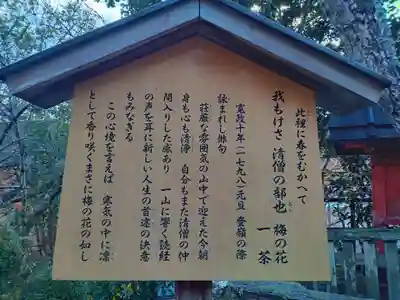 此裡に春をむかへて
我もけさ 清僧の部也 梅の花
一茶
寛政十年(一七九八)元旦 登嶺の際
詠まれし俳句
荘厳な雰囲気の山中で迎えた今朝
身も心も清浄 自分もまた清僧の仲
間入りした感あり 一山に響く読経
の声を耳に新しい人生の首途の決意
もみなぎる
この心境を言えば 寒気の中に凛
として香り咲くまさに梅の花の如し